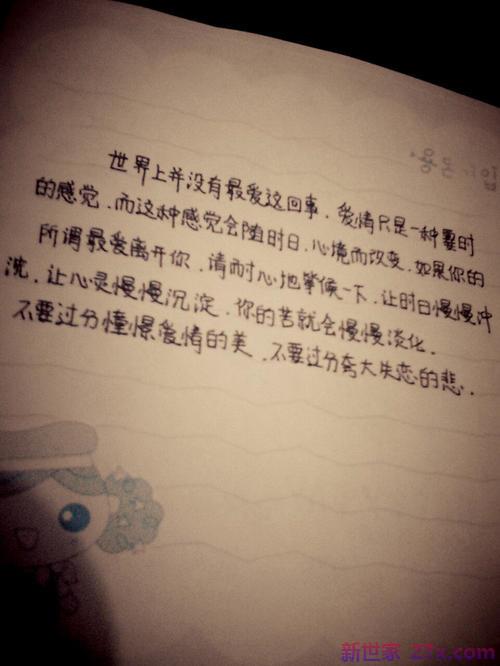 世界上并没有最爱这回事．爱情只是一种霎时
的感觉．而这种感觉会随时日．心境而改变．如果你的
所谓最爱离开你．请耐心地等候一下．让时日慢慢冲
洗．让心灵慢慢沉淀．你的苦就会慢慢淡化．
不要过分憧憬爱情的美．不要过分夸大失恋的悲．
新世家 27x.com